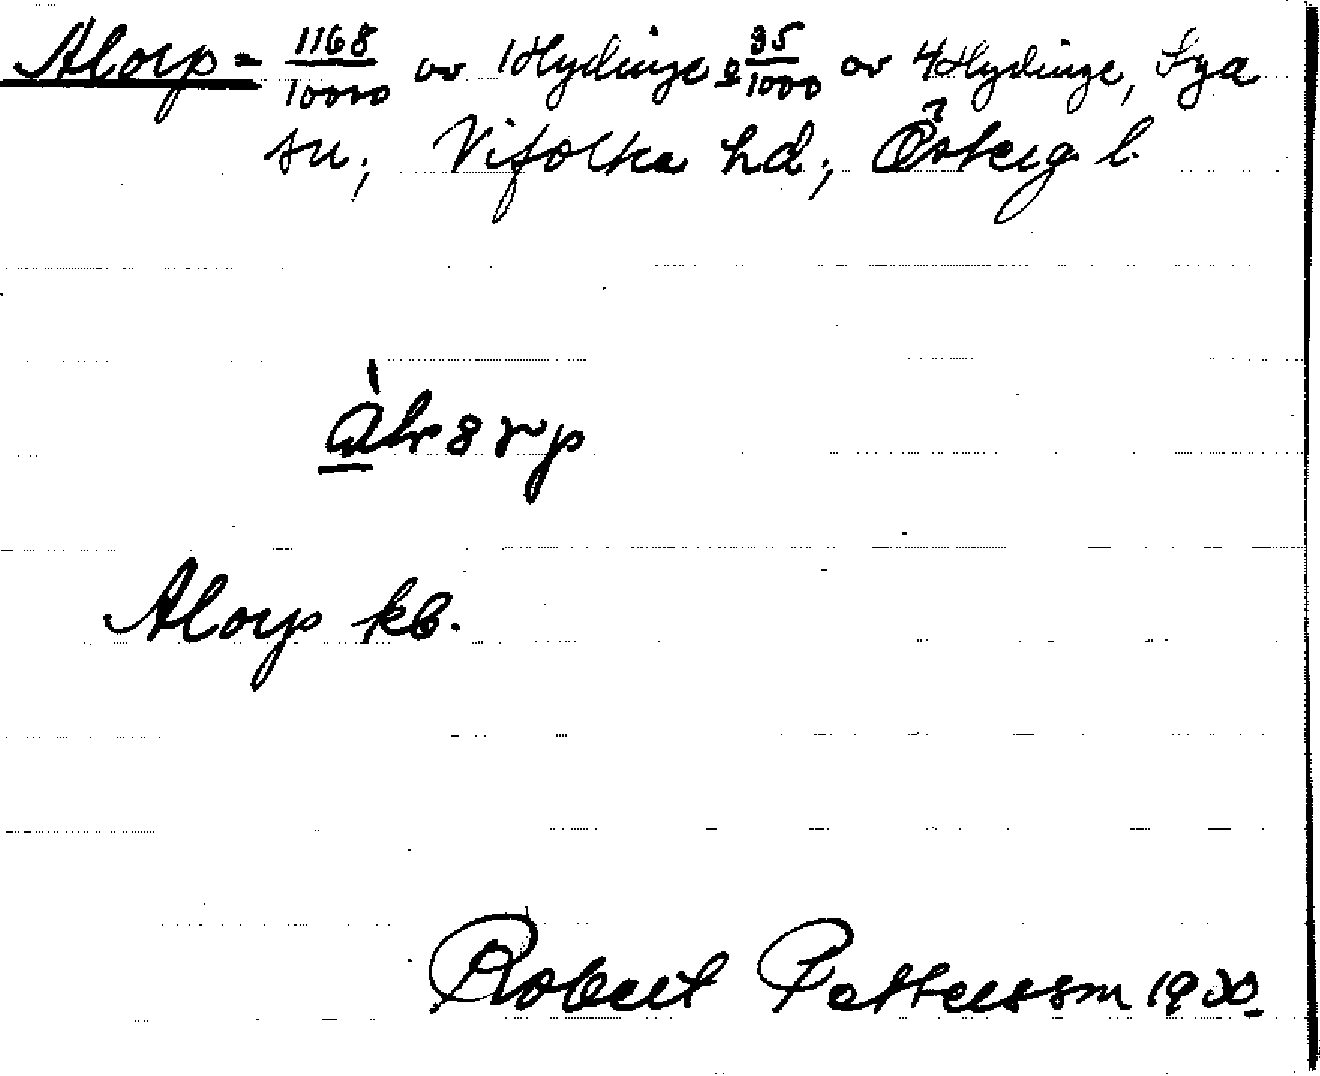 Alorp = 1168/10000 av 1 Hydinge o 85/1000 av 4 Hydinge, Sya
sn, Vifolka hd, Österg l.
Alorp kb.
Robert Pettersson 1930.